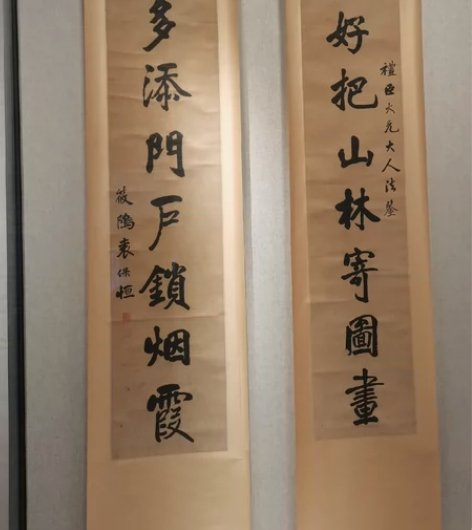 好把山林寄圖畫
禮臣大兄大人法鑒
多添門戶鎖烟霞
筱隝袁保恒